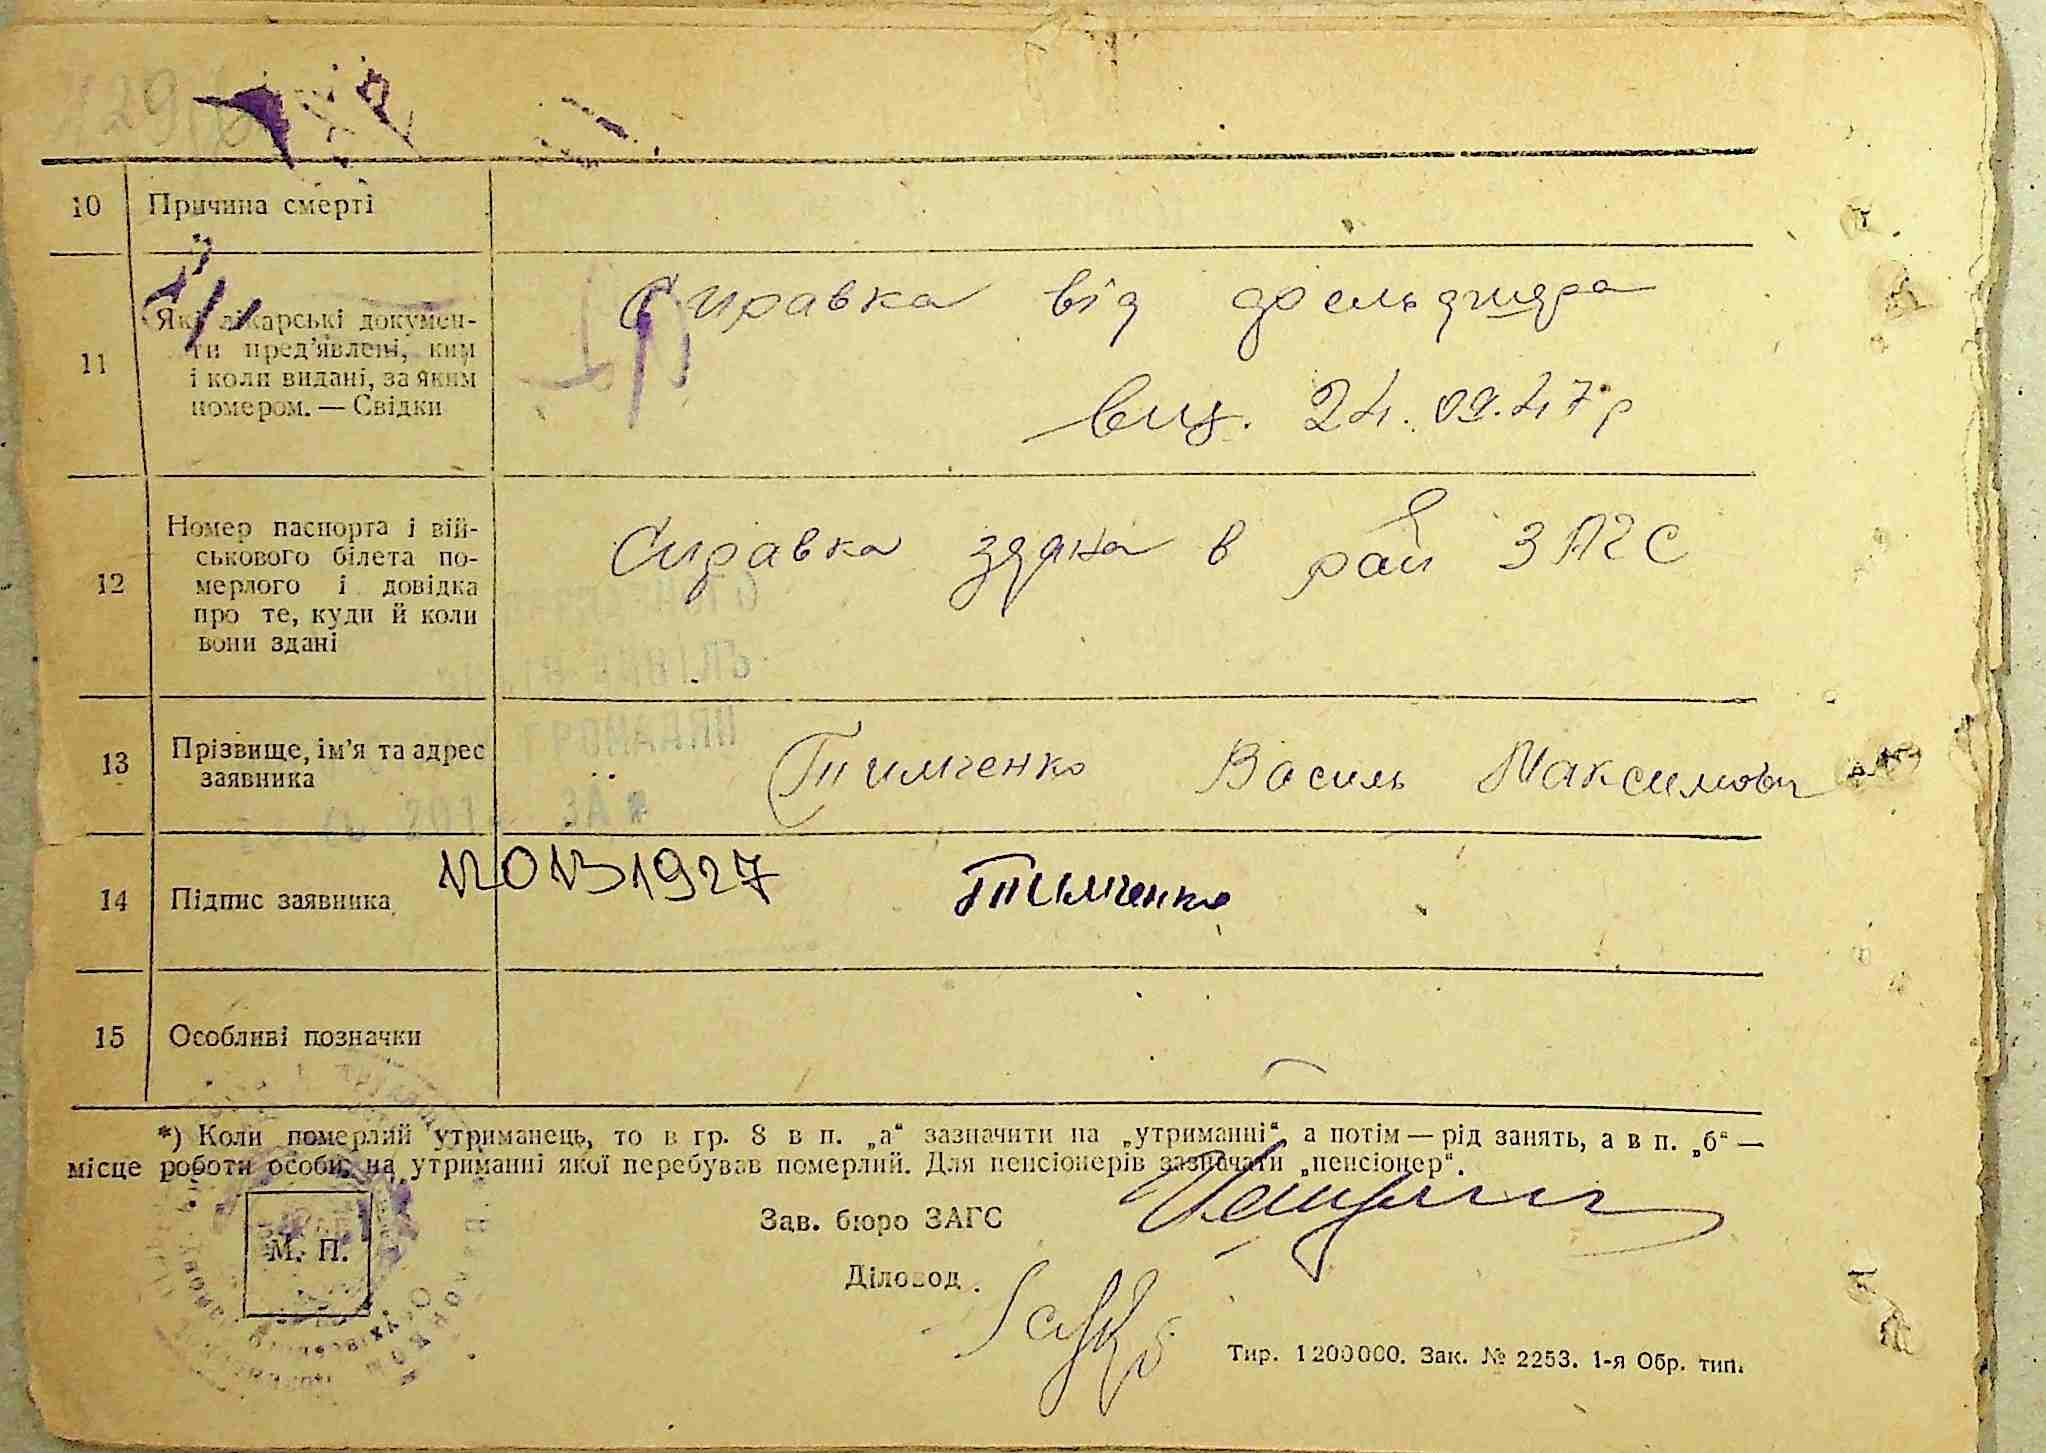 129
10 Причина смерті
11 Які лікарські докумен-
ти пред'явлені, ким
і коли видані, за яким
номером. — Свідки
Справка від фельдшера
вид. 24.09.47 р
12 Номер паспорта і вій-
ськового білета по-
мерлого і довідка
про те, куди й коли
вони здані
Справка здана в рай ЗАГС
13 Прізвище, ім'я та адрес
заявника
Тимченко Василь Максимович
14 Підпис заявника
120131927 Тимченко
15 Особливі позначки
*) Коли померлий утриманець, то в гр. 8 в п. „а“ зазначити на „утриманні“ а потім — рід занять, а в п. „б“ —
місце роботи особи, на утриманні якої перебував померлий. Для пенсіонерів зазначати „пенсіонер“.
М. П.
Зав. бюро ЗАГС
Діловод.
Тир. 1200000. Зак. № 2253. 1-я Обр. тип.